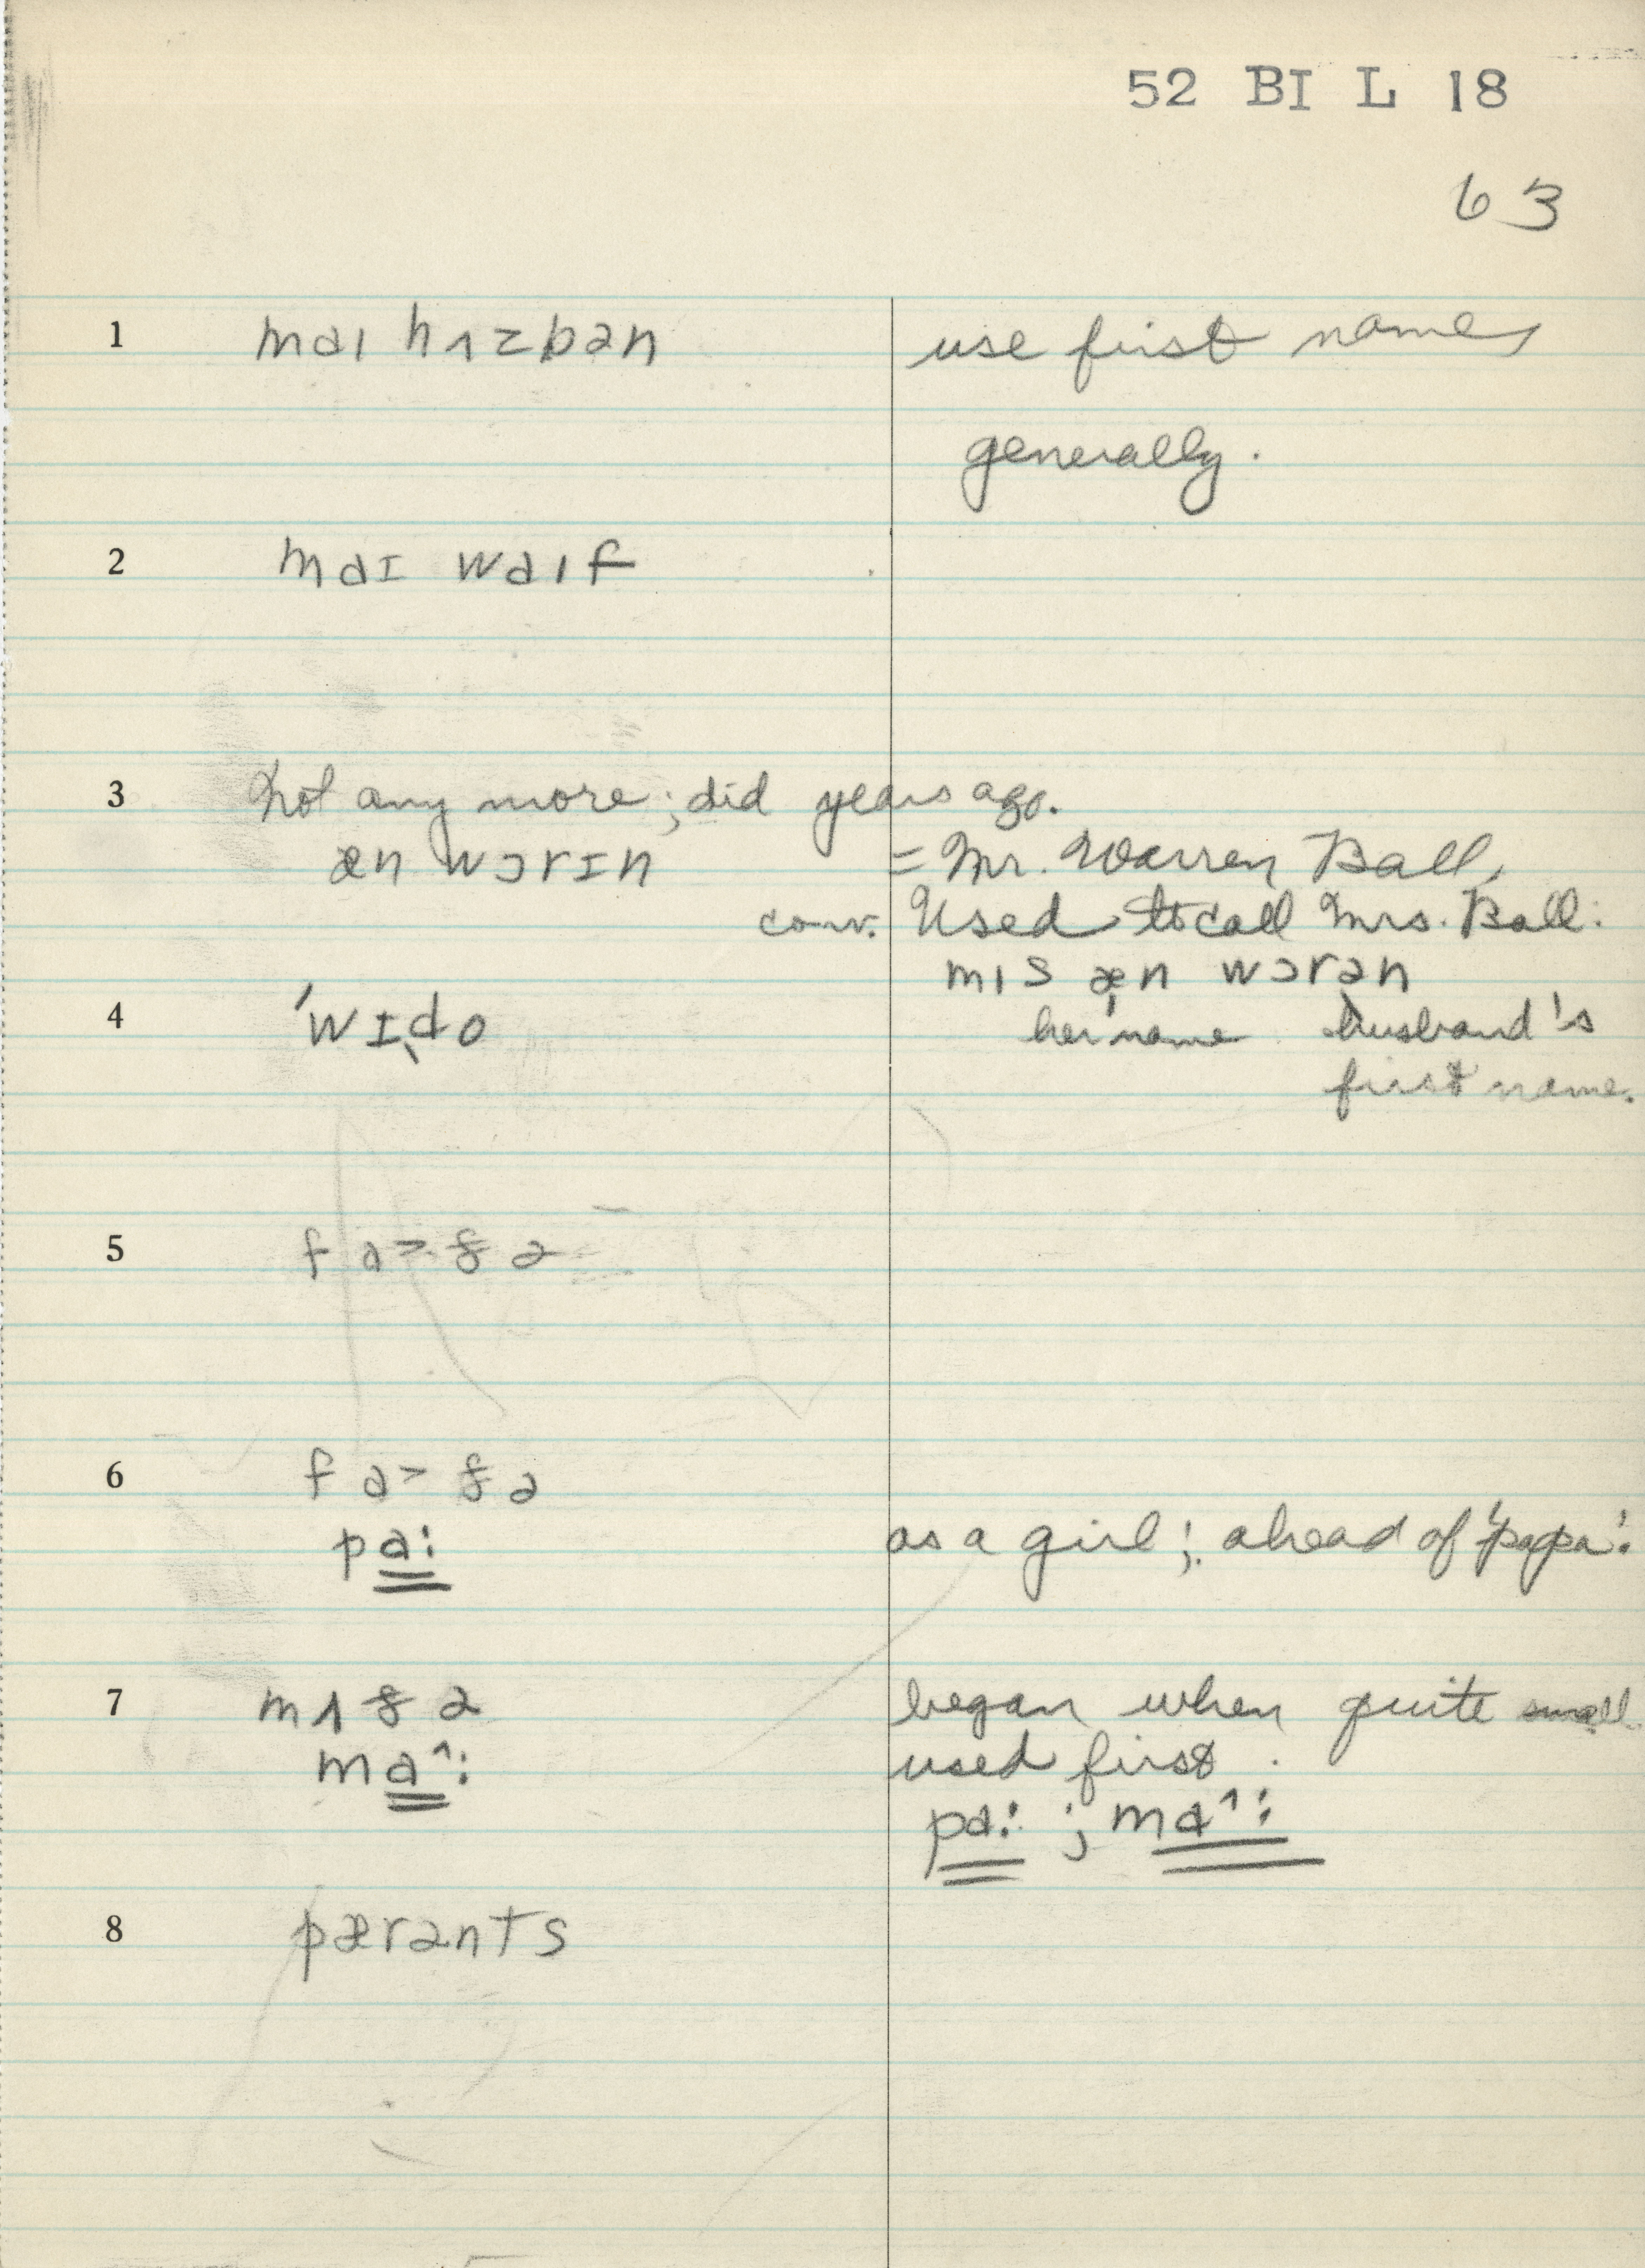 52 BI L 18
63
1 maɪ hʌzbən use first names
generally.
2 maɪ waɪf
3 Not any more; did years ago.
æn wɔrɪn = Mr. Warren Ball,
conv. Used to call Mrs. Ball:
mɪs æn wɔrən
her name husband's
4 ˈwɪˌdo
first name.
5 fa> ðə
6 fa> ðə
pa: as a girl; ahead of 'papa'.
7 mʌðə began when quite small.
ma^: used first.
pa: ; ma^:
8 pærənts